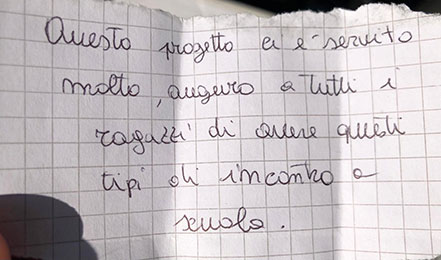 Questo progetto ci è servito
molto, auguro a tutti i
ragazzi di avere questi
tipi di incontro a
scuola.